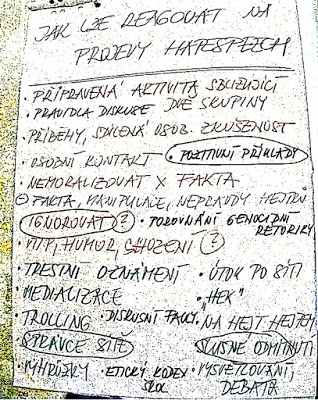 JAK LZE REAGOVAT NA
PROJEVY HATESPEECH
• PŘIPRAVENÁ AKTIVITA SBLIŽUJÍCÍ
• PRAVIDLA DISKUSE DVĚ SKUPINY
• PŘÍBĚHY, SDÍLENÁ OSOB. ZKUŠENOST
• OSOBNÍ KONTAKT • POZITIVNÍ PŘÍKLADY
• NEMORALIZOVAT X FAKTA
FAKTA, MANIPULACE, NEPRAVDY HEJTRŮ
IGNOROVAT ? • POROVNÁNÍ GENOCIDNÍ
RETORIKY
• VTIP, HUMOR, SHOZENÍ ?
• TRESTNÍ OZNÁMENÍ • ÚTOK PO SÍTI
• MEDIALIZACE "HEK"
• TROLLING • DISKUSNÍ FAULY • "NA HEJT HEJTEM
SPRÁVCE SÍTĚ SLUŠNÉ ODMÍTNUTÍ
• VÝHRŮŽKY • ETICKÝ KODEX • VYSVĚTLOVÁNÍ,
DEBATA